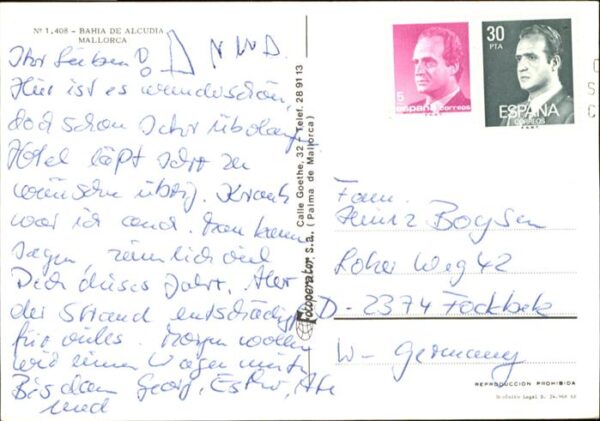 Nº 1.408 - BAHIA DE ALCUDIA
MALLORCA
Ihr Lieben!
Hier ist es wunderschön,
doch schon sehr
Hotel läßt sehr zu
wünschen übrig. Krank
war ich auch. Man kann
sagen, ziemlich viel
Pech dieses Jahr. Aber
der Strand entschädigt
für vieles. Morgen wollen
wir einen Wagen mieten
Bis dann Georg,
und
Fotoperator, S.A.
Calle Goethe, 32. Telef. 28 91 13
(Palma de Mallorca)
5
españa correos
30
PTA
ESPAÑA
CORREOS
F.N.M.T.
Fam.
Heinz Boysen
Loher Weg 42
D-2374 Fockbek
W-Germany
REPRODUCCION PROHIBIDA